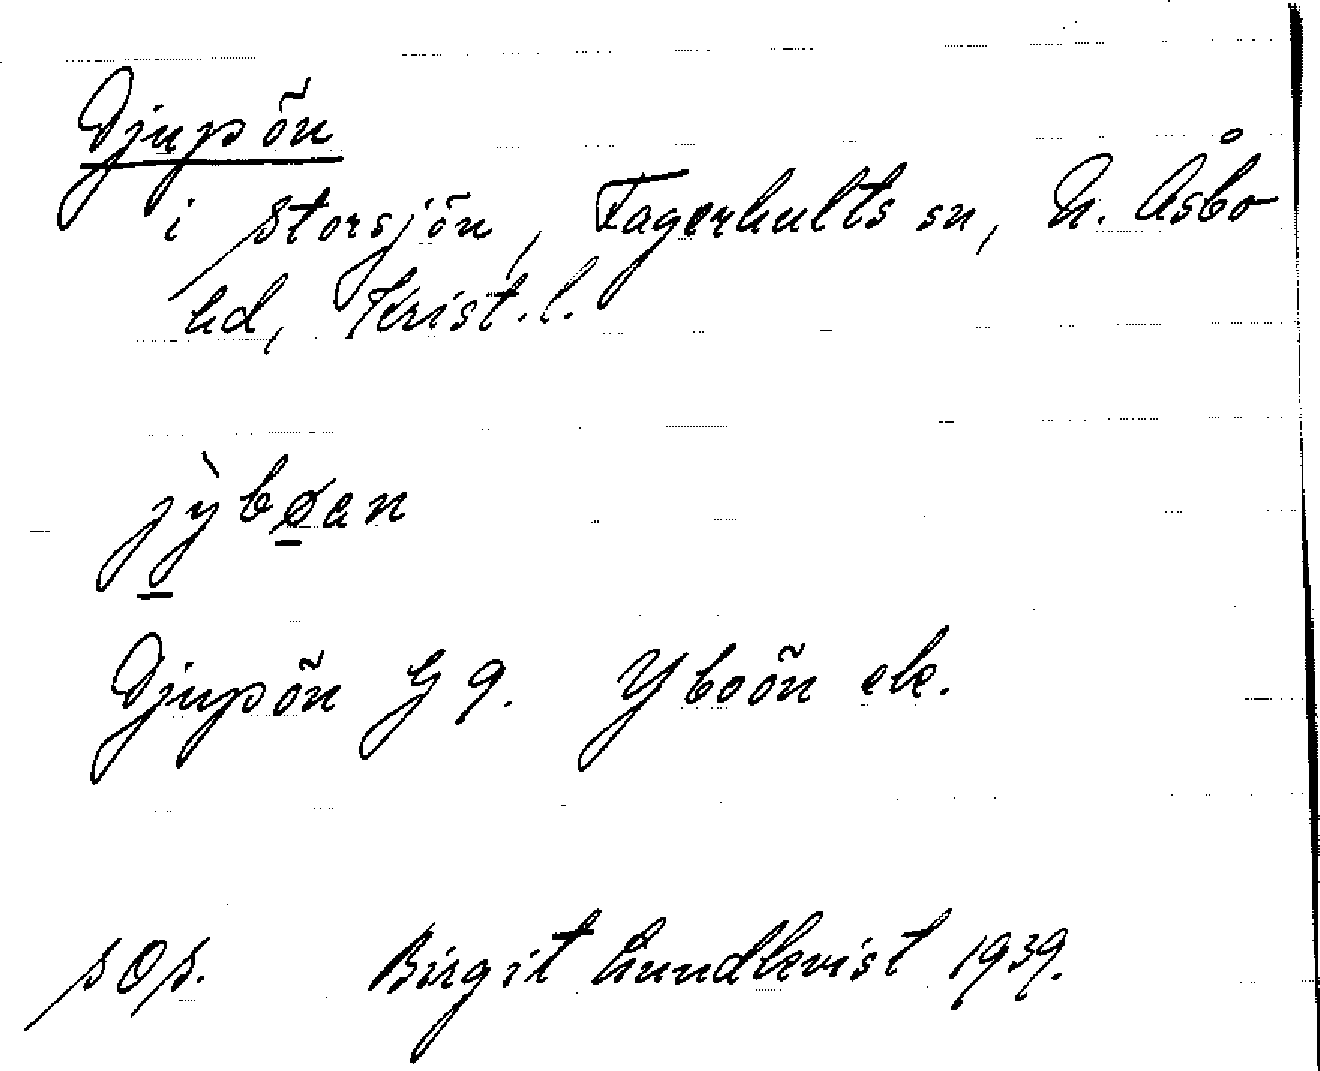 Djupön
i Storsjön, Fagerhults sn, N. Åsbo
hd, Krist. l.
jỳbøan
Djupön G 9. Yboön ek.
sOs. Birgit Lundkvist 1939.